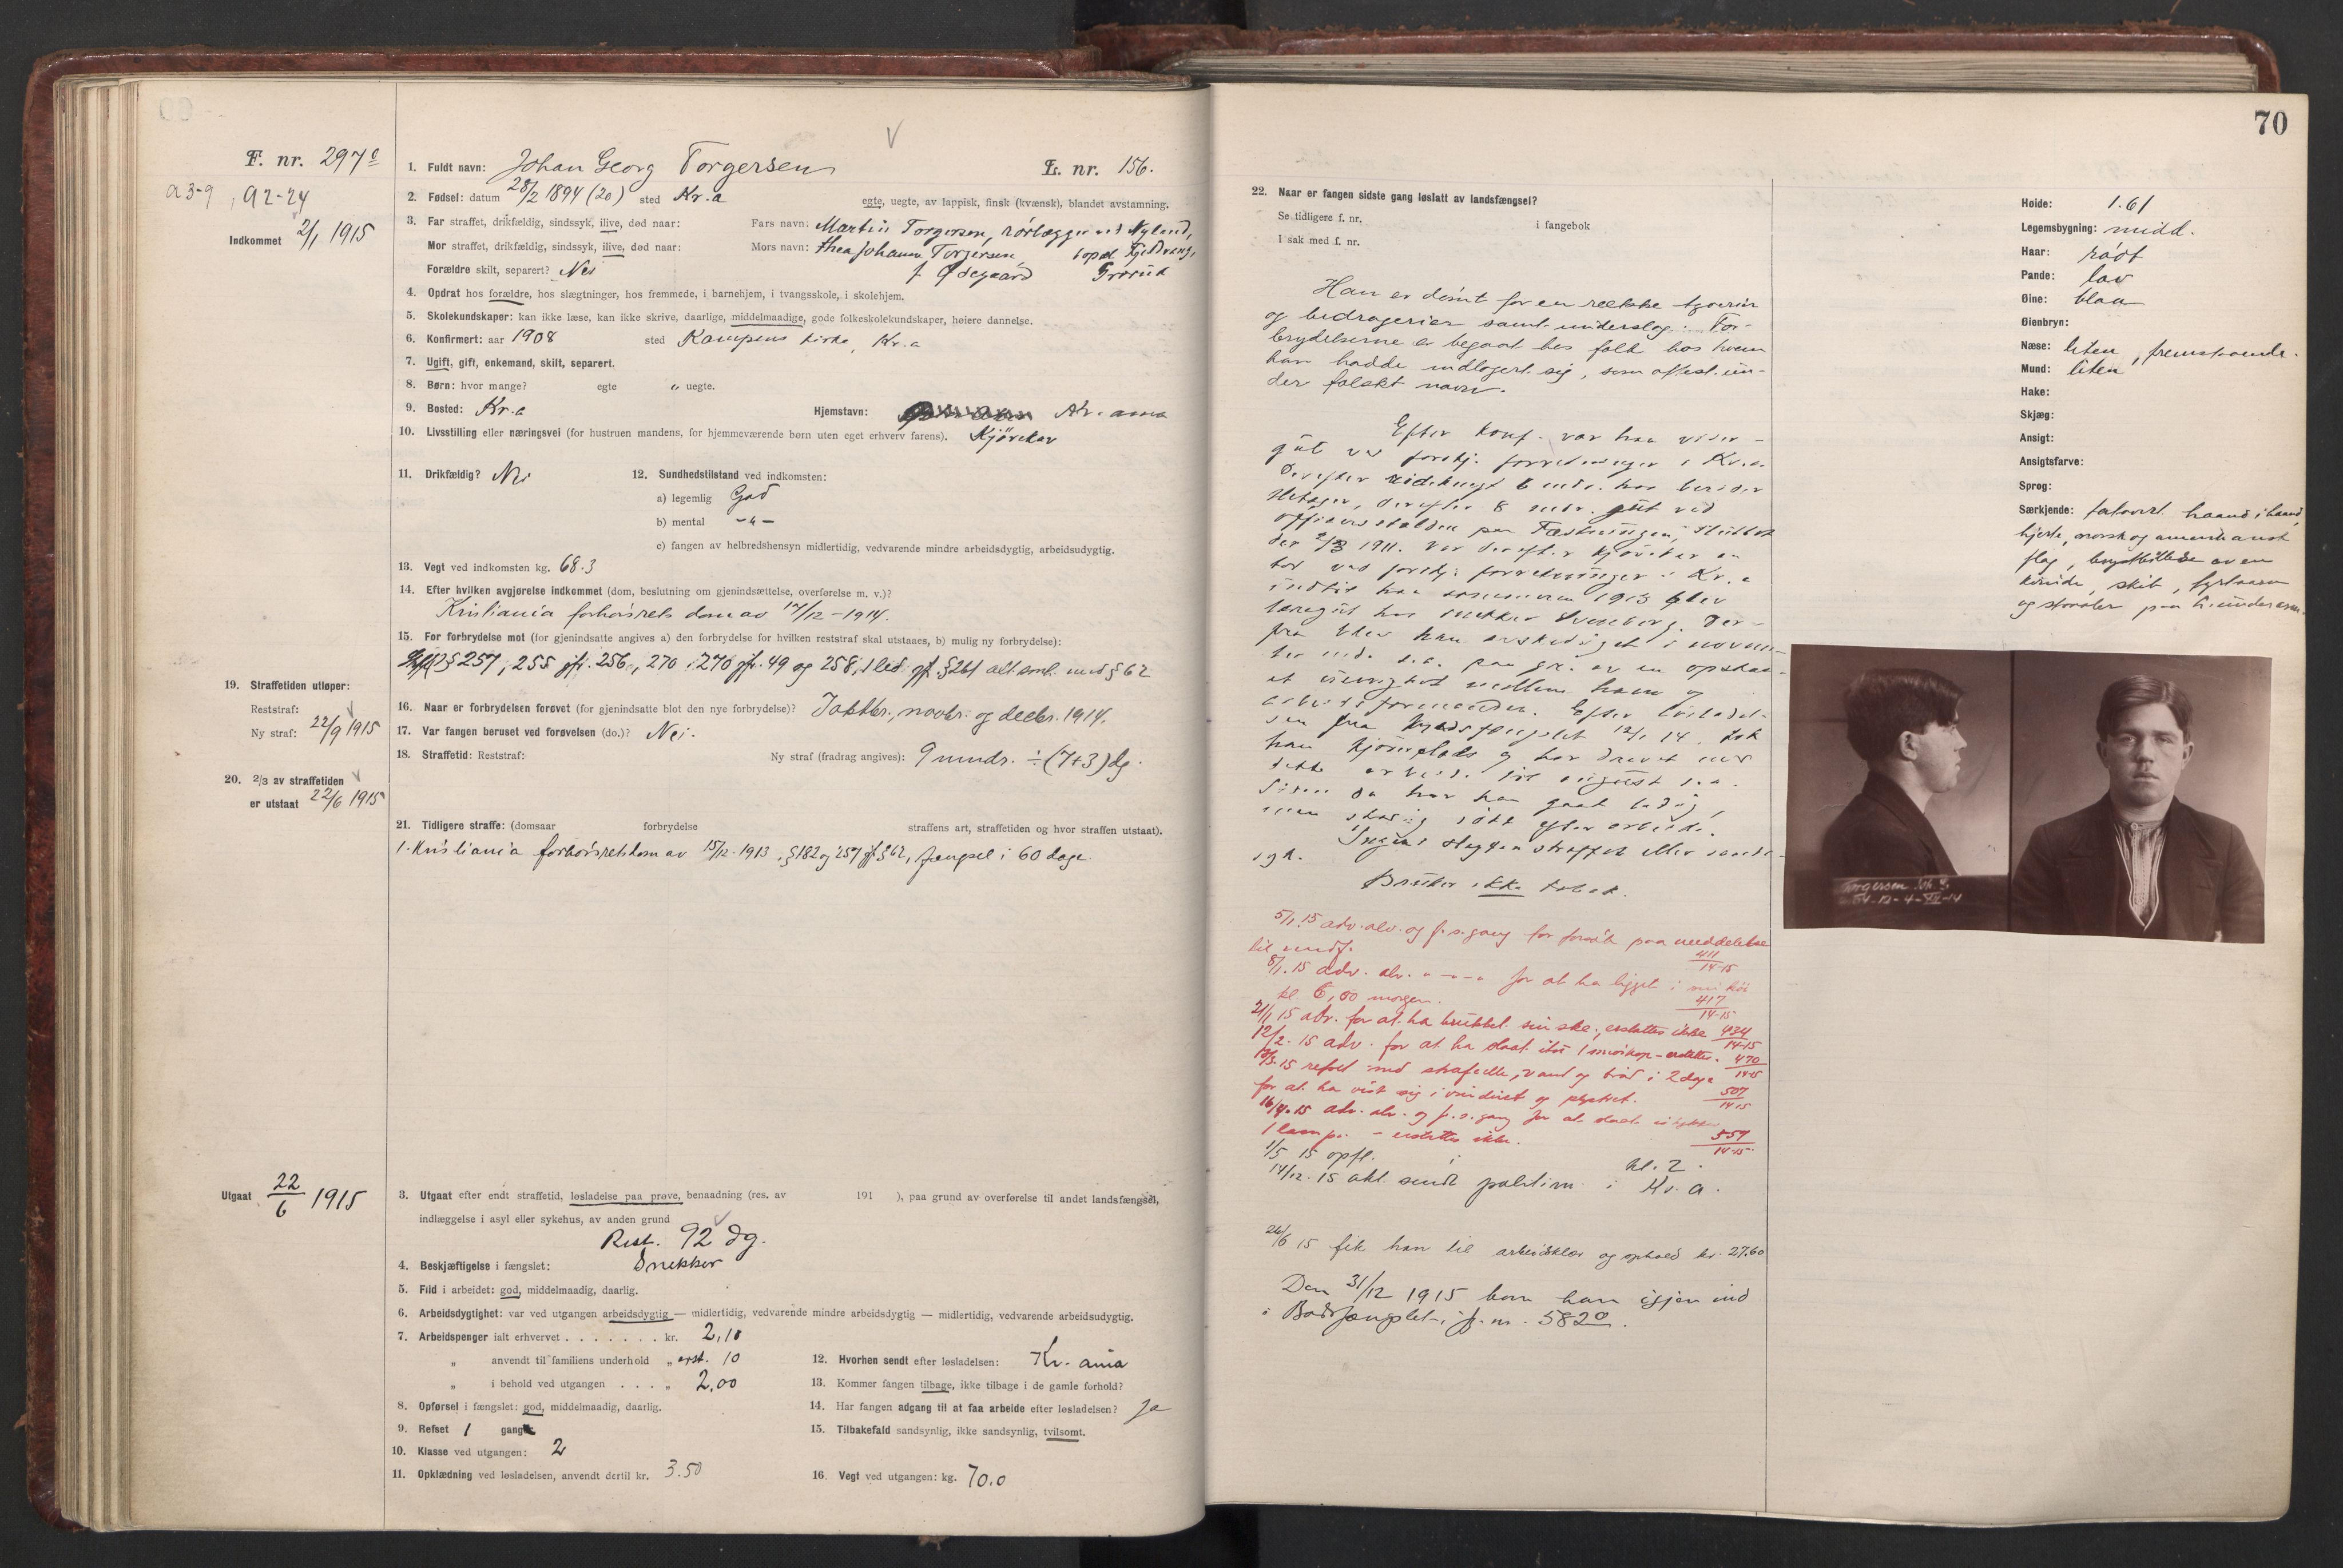 F. nr. 297º
a 3-9, a 2-24
Indkommet 2/1 1915
1. Fuldt navn: Johan Georg Torgersen
L. nr. 156.
2. Fødsel: datum 28/2 1894 (20) sted Kr.a
egte, uegte, av lappisk, finsk (kvænsk), blandet avstamning.
3. Far straffet, drikfældig, sindssyk, ilive, død naar:
Fars navn: Martin Torgersen, rørlægger ved Nyland,
Mor straffet, drikfældig, sindssyk, ilive, død naar:
Mors navn: Thea Johanne Torgersen,
f. Ødegaard
Grorud
Forældre skilt, separert? Nei
4. Opdrat hos forældre, hos slægtninger, hos fremmede, i barnehjem, i tvangsskole, i skolehjem.
5. Skolekundskaper: kan ikke læse, kan ikke skrive, daarlige, middelmaadige, gode folkeskolekundskaper, høiere dannelse.
6. Konfirmert: aar 1908 sted Kampens kirke, Kr.a
7. Ugift, gift, enkemand, skilt, separert.
8. Børn: hvor mange? egte „ uegte.
9. Bosted: Kr.a
Hjemstavn: Kr.ania
10. Livsstilling eller næringsvei (for hustruen mandens, for hjemmeværende børn uten eget erhverv farens). Kjørekar
11. Drikfældig? Nei
12. Sundhetstilstand ved indkomsten:
a) legemlig God
b) mental -„-
c) fangen av helbredshensyn midlertidig, vedvarende mindre arbeidsdygtig, arbeidsudygtig.
13. Vegt ved indkomsten kg. 68.3
14. Efter hvilken avgjørelse indkommet (dom, beslutning om gjenindsættelse, overførelse m. v.)?
Kristiania forhørsrets dom av 17/12 - 1914.
15. For forbrydelse mot (for gjenindsatte angives a) den forbrydelse for hvilken reststraf skal utstaaes, b) mulig ny forbrydelse):
§ 257, 255 jfr. 256, 270, 270 jfr. 49 og 258, 1 led jf. § 261 alt smh. med § 62
16. Naar er forbrydelsen forøvet (for gjenindsatte blot den nye forbrydelse)? I oktbr., novbr. og decbr. 1914.
17. Var fangen beruset ved forøvelsen (do.)? Nei.
18. Straffetid: Reststraf:
Ny straf (fradrag angives): 9 mndr. ÷ (7+3) dg.
19. Straffetiden utløper:
Reststraf:
Ny straf: 22/9 1915
20. 2/3 av straffetiden
er utstaat 22/6 1915
21. Tidligere straffe: (domsaar forbrydelse straffens art, straffetiden og hvor straffen utstaat).
1. Kristiania forhørsrets dom av 15/12 1913, § 182 og 257 jf. § 62, fængsel i 60 dage.
Utgaat 22/6 1915
3. Utgaat efter endt straffetid, løsladelse paa prøve, benaadning (res. av 191 ), paa grund av overførelse til andet landsfængsel,
indlæggelse i asyl eller sykehus, av anden grund
Rest. 92 dg.
4. Beskjæftigelse i fængslet: Snekker
5. Flid i arbeidet: god, middelmaadig, daarlig.
6. Arbeidsdygtighet: var ved utgangen arbeidsdygtig — midlertidig, vedvarende mindre arbeidsdygtig — midlertidig, vedvarende arbeidsudygtig.
7. Arbeidspenger ialt erhvervet . . . . . . . kr. 2,10
„ anvendt til familiens underhold „ erst. 10
„ i behold ved utgangen . . . . „ 2,00
8. Opførsel i fængslet: god, middelmaadig, daarlig.
9. Refset 1 gang
10. Klasse ved utgangen: 2
11. Opklædning ved løsladelsen, anvendt dertil kr. 3.50
12. Hvorhen sendt efter løsladelsen: Kr.ania
13. Kommer fangen tilbage, ikke tilbage i de gamle forhold?
14. Har fangen adgang til at faa arbeide efter løsladelsen? Ja
15. Tilbakefald sandsynlig, ikke sandsynlig, tvilsomt.
16. Vegt ved utgangen: kg. 70.0
70
22. Naar er fangen sidste gang løslatt av landsfængsel?
Se tidligere f. nr. i fangebok
I sak med f. nr.
Han er dømt for en række tyverier
og bedragerier samt underslag. For-
brydelserne er begaat hos folk hos hvem
han hadde indlogert sig, som oftest un-
der falskt navn.
Efter konf. var han viser-
gut ved forskj. forretninger i Kr.a.
Derefter rideknegt 6 mdr. hos berider
derefter 8 mdr. gut ved
paa Fæstningen, sluttet
der 1911. Var derefter kjørekar en
tid ved forskj. forretninger i Kr.a
indtil han sommeren 1913 blev
læregut hos snekker Svenberg. Der-
fra blev han avskediget i novem-
ber md. s.a. paa gr. av en opstaa-
et uenighet mellem ham og
arbeidsformanden. Efter løsladel-
sen fra 12/1 14 fik
han kjøreplads og har drevet med
dette arbeide til august s.a.
Siden da har han gaat ledig,
men stadig søkt efter arbeide.
Ingen i slegten straffet eller sinds-
syk.
Bruker ikke tobak.
5/1 15 adv. alv. og f. s. gang for forsøk paa meddelelse
til medf. 411/14-15
8/1 15 adv. alv. „ - „ - „ for at ha ligget i sin køi
kl. 6,00 morgen. 417/14-15
21/1 15 adv. for at ha brukket sin ske, erstattes ikke 434/14-15
12/2 15 adv. for at ha slaat itu 1 - erstattes. 470/14-15
15 refset med strafcelle, vand og brød i 2 dage
for at ha vist sig i vinduet og plystret. 507/14-15
16/4 15 adv. alv. og f. s. gang for at slaat istykker
1 lampe - erstattes ikke. 559/14-15
1/5 15 opfl. kl. 2.
14/12 15 akt. sendt politim. i Kr.a.
26/6 15 fik han til arbeidsklær og ophold kr. 27.60
Den 31/12 1915 kom han igjen ind
i Bodsfængslet i f. nr. 582º.
Høide: 1.61
Legemsbygning: midd.
Haar: rødt
Pande: lav
Øine: blaa
Øienbryn:
Næse: liten, fremstaaende.
Mund: liten
Hake:
Skjæg:
Ansigt:
Ansigtsfarve:
Sprog:
Særkjende: tatovert haand i haand,
hjerte, norsk og amerikansk
flag, brystbillede av en
kvinde, skib, fyrtaarn
og paa h. underarm.
Torgersen Joh. G.